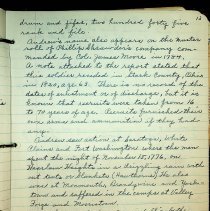 13
drum and fife, two hundred forty five
rank and file.
name also appears on the muster
roll of Phillip company com-
manded by Col. James Moore in 1784.
A note attached to the report stated that
this soldier resided in Stark County, Ohio
in 1820, age 63. There is no record of the
dates of enlistment or discharge, but it is
known that recruits were taken from 16
to 70 years of age. Recruits furnished their
own arms and ammunition if they had
any.
saw action at Saratoga, White
Plains and Fort Washington where the men
spent the night of November 15, 1776, on
Heights in a snow with
no tents or blankets He also
was at Monmouth, Brandywine and York-
town and suffered in the camps at Valley
Forge and Morristown.